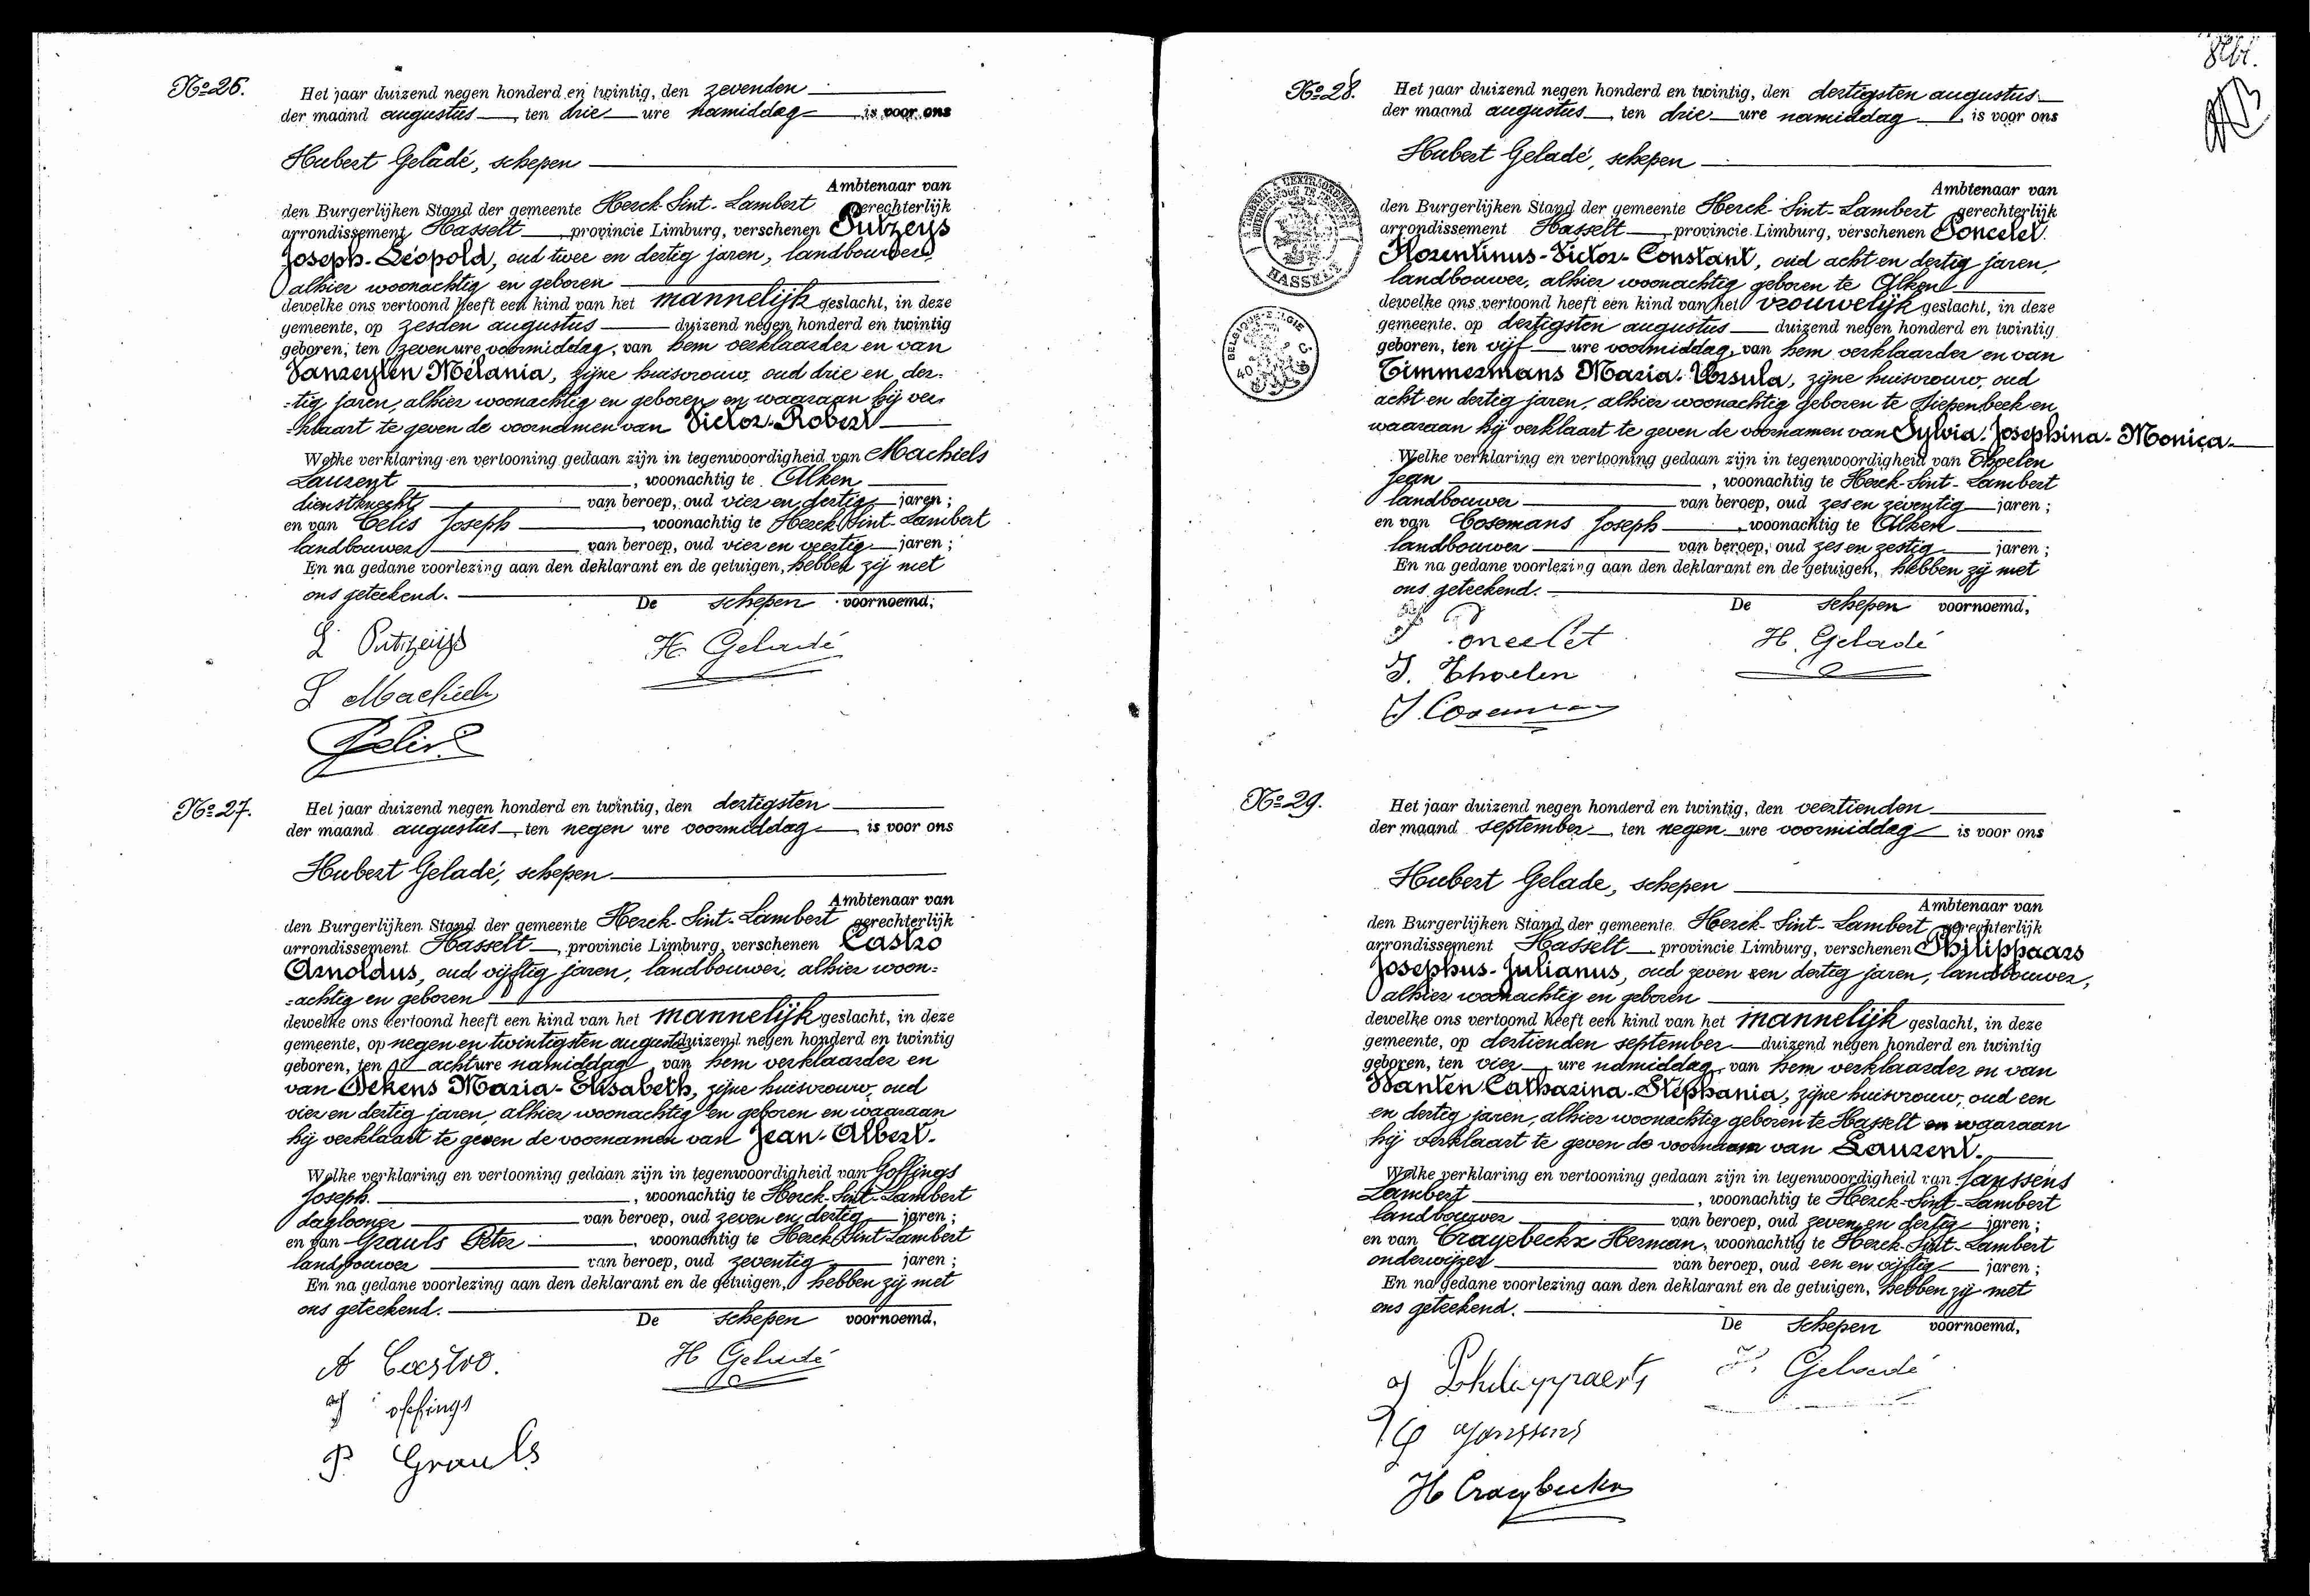 No 26.
Het jaar duizend negen honderd en twintig, den zevenden
der maand augustus, ten drie ure namiddag is voor ons
Hubert Geladé, schepen
Ambtenaar van
den Burgerlijken Stand der gemeente Herck-Sint-Lambert gerechterlijk
arrondissement Hasselt, provincie Limburg, verschenen Putzeys
Joseph-Léopold, oud twee en dertig jaren, landbouwer,
alhier woonachtig en geboren
dewelke ons vertoond heeft een kind van het mannelijk geslacht, in deze
gemeente, op zesden augustus duizend negen honderd en twintig
geboren, ten zeven ure voormiddag, van hem verklaarder en van
Vanzeylen Mélania, zijne huisvrouw, oud drie en der-
-tig jaren, alhier woonachtig en geboren en waaraan hij ver-
-klaart te geven de voornamen van Victor-Robert
Welke verklaring en vertooning gedaan zijn in tegenwoordigheid van Machiels
Laurent, woonachtig te Alken
dienstknecht van beroep, oud vier en dertig jaren;
en van Celis Joseph, woonachtig te Herck-Sint-Lambert
landbouwer van beroep, oud vier en veertig jaren;
En na gedane voorlezing aan den deklarant en de getuigen, hebben zij met
ons geteekend.
De schepen voornoemd,
L Putzeijs
H. Geladé
L Machiels
No 27.
Het jaar duizend negen honderd en twintig, den dertigsten
der maand augustus, ten negen ure voormiddag, is voor ons
Hubert Geladé, schepen
Ambtenaar van
den Burgerlijken Stand der gemeente Herck-Sint-Lambert gerechterlijk
arrondissement Hasselt, provincie Limburg, verschenen Castro
Arnoldus, oud vijftig jaren, landbouwer, alhier woon-
-achtig en geboren
dewelke ons vertoond heeft een kind van het mannelijk geslacht, in deze
gemeente, op negen en twintigsten augustus duizend negen honderd en twintig
geboren, ten acht ure namiddag van hem verklaarder en
van Dekens Maria-Elisabeth, zijne huisvrouw, oud
vier en dertig jaren, alhier woonachtig en geboren en waaraan
hij verklaart te geven de voornamen van Jean-Albert.
Welke verklaring en vertooning gedaan zijn in tegenwoordigheid van Goffings
Joseph, woonachtig te Herck-Sint-Lambert
daglooner van beroep, oud zeven en dertig jaren;
en van Grauls Peter, woonachtig te Herck-Sint Lambert
landbouwer van beroep, oud zeventig jaren;
En na gedane voorlezing aan den deklarant en de getuigen, hebben zij met
ons geteekend.
De schepen voornoemd,
A Castro.
H Geladé
offings
P. Grauls
No 28.
Het jaar duizend negen honderd en twintig, den dertigsten augustus
der maand augustus, ten drie ure namiddag, is voor ons
Hubert Geladé, schepen
Ambtenaar van
den Burgerlijken Stand der gemeente Herck-Sint-Lambert gerechterlijk
arrondissement Hasselt, provincie Limburg, verschenen Poncelet
Florentinus-Victor-Constant, oud acht en dertig jaren,
landbouwer, alhier woonachtig geboren te Alken
dewelke ons vertoond heeft een kind van het vrouwelijk geslacht, in deze
gemeente, op dertigsten augustus duizend negen honderd en twintig
geboren, ten vijf ure voormiddag, van hem verklaarder en van
Timmermans Maria-Ursula, zijne huisvrouw, oud
acht en dertig jaren, alhier woonachtig geboren te Diepenbeek en
waaraan hij verklaart te geven de voornamen van Sylvia-Josephina-Monica
Welke verklaring en vertooning gedaan zijn in tegenwoordigheid van Thoelen
Jean, woonachtig te Herck-Sint-Lambert
landbouwer van beroep, oud zes en zeventig jaren;
en van Cosemans Joseph, woonachtig te Alken
landbouwer van beroep, oud zes en zestig jaren;
En na gedane voorlezing aan den deklarant en de getuigen, hebben zij met
ons geteekend.
De schepen voornoemd,
Poncelet
H. Geladé
J. Thoelen
J. Cosemans
HASSELT
No 29.
Het jaar duizend negen honderd en twintig, den veertienden
der maand september, ten negen ure voormiddag is voor ons
Hubert Gelade, schepen
Ambtenaar van
den Burgerlijken Stand der gemeente Herck-Sint-Lambert gerechterlijk
arrondissement Hasselt, provincie Limburg, verschenen Philippaars
Josephus-Julianus, oud zeven een dertig jaren, landbouwer,
alhier woonachtig en geboren
dewelke ons vertoond heeft een kind van het mannelijk geslacht, in deze
gemeente, op dertienden september duizend negen honderd en twintig
geboren, ten vier ure namiddag, van hem verklaarder en van
Vanten Catharina-Stephania, zijne huisvrouw, oud een
en dertig jaren, alhier woonachtig geboren te Hasselt en waaraan
hij verklaart te geven de voornaam van Laurent.
Welke verklaring en vertooning gedaan zijn in tegenwoordigheid van Janssens
Lambert, woonachtig te Herck-Sint-Lambert
landbouwer van beroep, oud zeven en dertig jaren;
en van Crayebeckx Herman, woonachtig te Herck-Sint-Lambert
onderwijzer van beroep, oud een en vijftig jaren;
En na gedane voorlezing aan den deklarant en de getuigen, hebben zij met
ons geteekend.
De schepen voornoemd,
Philippaerts
Geladé
Janssens
H Craeybeckx